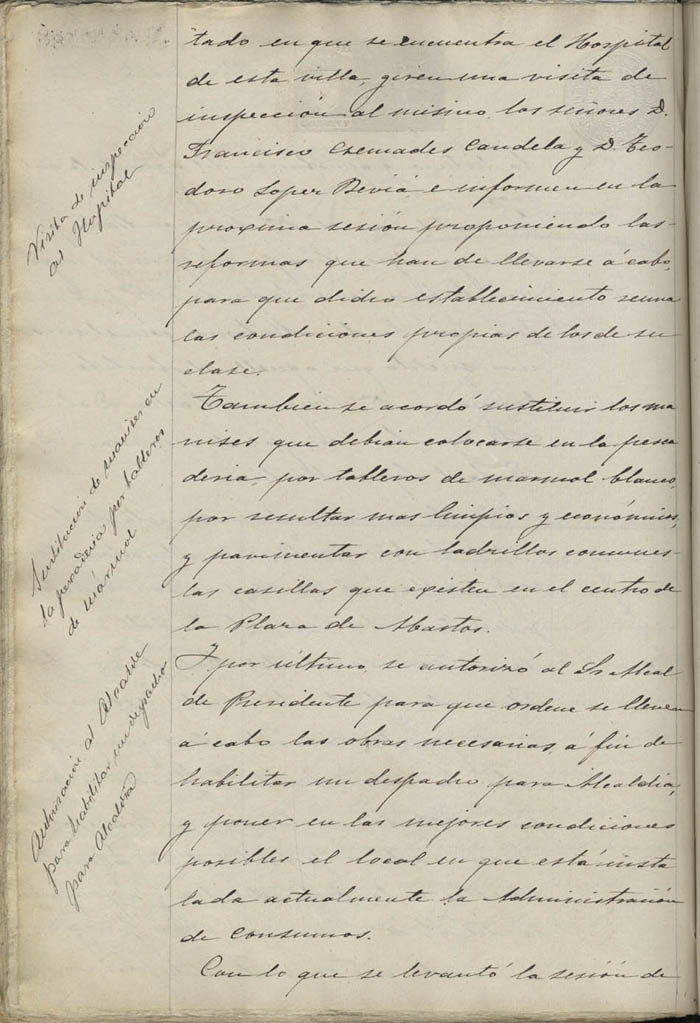 tado en que se encuentra el Hospital
de esta villa, giren una visita de
inspección al mismo, los señores D.
Francisco Cremades Candela y D. Teo-
doro Loper Beviá e informen en la
proxima sesión proponiendo las
reformas que han de llevarse á cabo,
para que dicho establecimiento reuna
las condiciones propias de los de su
clase.
Visita de inspección
al Hospital
Tambien se acordó sustituir los ma
nises que debian colocarse en la pesca
deria, por tableros de marmol blanco,
por resultar mas limpios y económicos,
y pavimentar con ladrillos comunes
las casillas que existen en el centro de
la Plaza de Abastos.
Sustitución de manises en
la pescaderia por tableros
de mármol
Y por último, se autorizó al Sr Alcal
de Presidente para que ordene se lleven
á cabo las obras necesarias, á fin de
habilitar un despacho para Alcaldia,
y poner en las mejores condiciones
posibles el local en que está insta
lada actualmente la Administración
de Consumos.
Autorización al Alcalde
para habilitar un despacho
para Alcaldía
Con lo que se levantó la sesión de